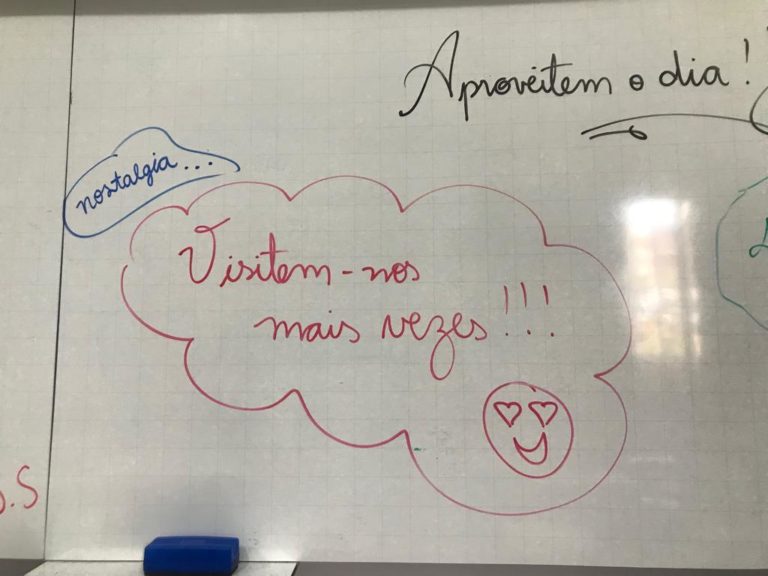 Aproveitem o dia!
nostalgia...
Visitem-nos
mais vezes!!!
.S